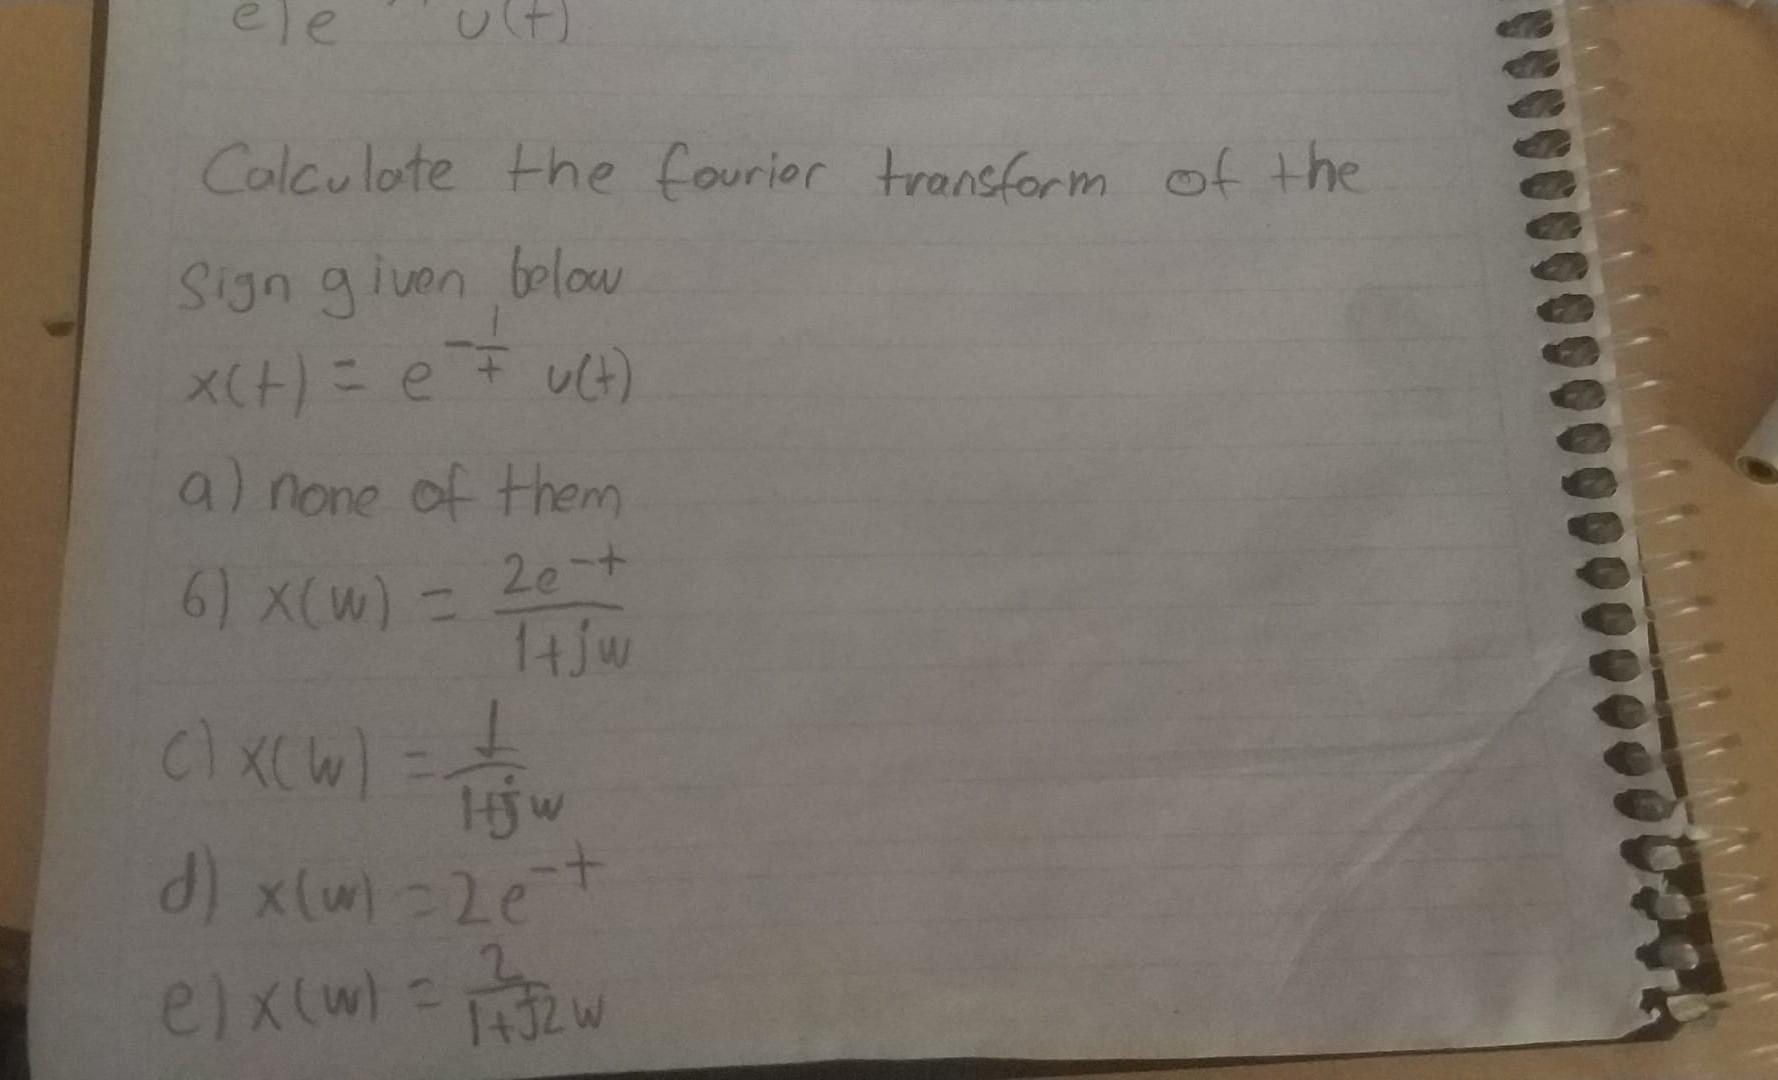 e) e u(t)
Calculate the fourier transform of the
sign given below
x(t) = e^{-\frac{1}{t}} u(t)
a) none of them
b) x(w) = \frac{2e^{-t}}{1+jw}
c) x(w) = \frac{1}{1+jw}
d) x(w) = 2e^{-t}
e) x(w) = \frac{2}{1+j2w}